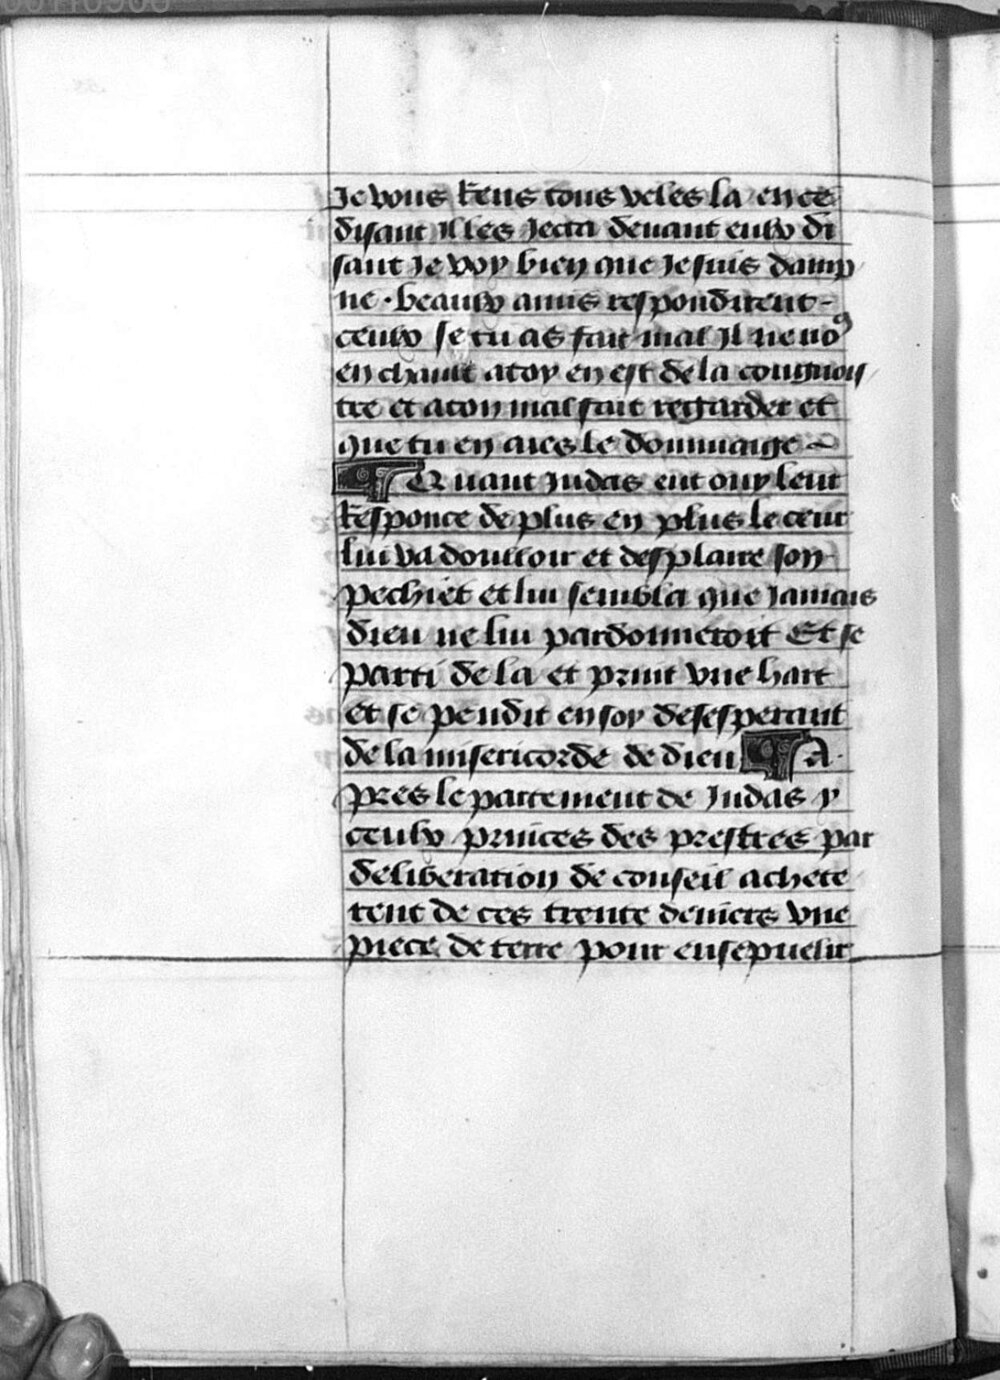 Je vous rens tous veles la en ce
disant il les jecta devant eulx di
sant Je voy bien que Je suis damp
ne · beaulx amis respondirent -
ceulx se tu as fait mal Il ne noꝰ
en chault a toy en est de la congnois
tre et a ton mal fait regarder et
que tu en aies le dommaige
¶ Quant Judas eut ouy leur
responce de plus en plus le ceur
lui va douloir et desplaire son
pechiet et lui sembla que Jamais
dieu ne lui pardonneroit Et se
parti de la et print vne hart
et se pendit en soy desesperant
de la misericorde de dieu ¶ A
pres le partement de Judas y
ceulx princes des prestres par
deliberation de conseil achete
rent de ces trente deniers vne
piece de terre pour ensepuelir